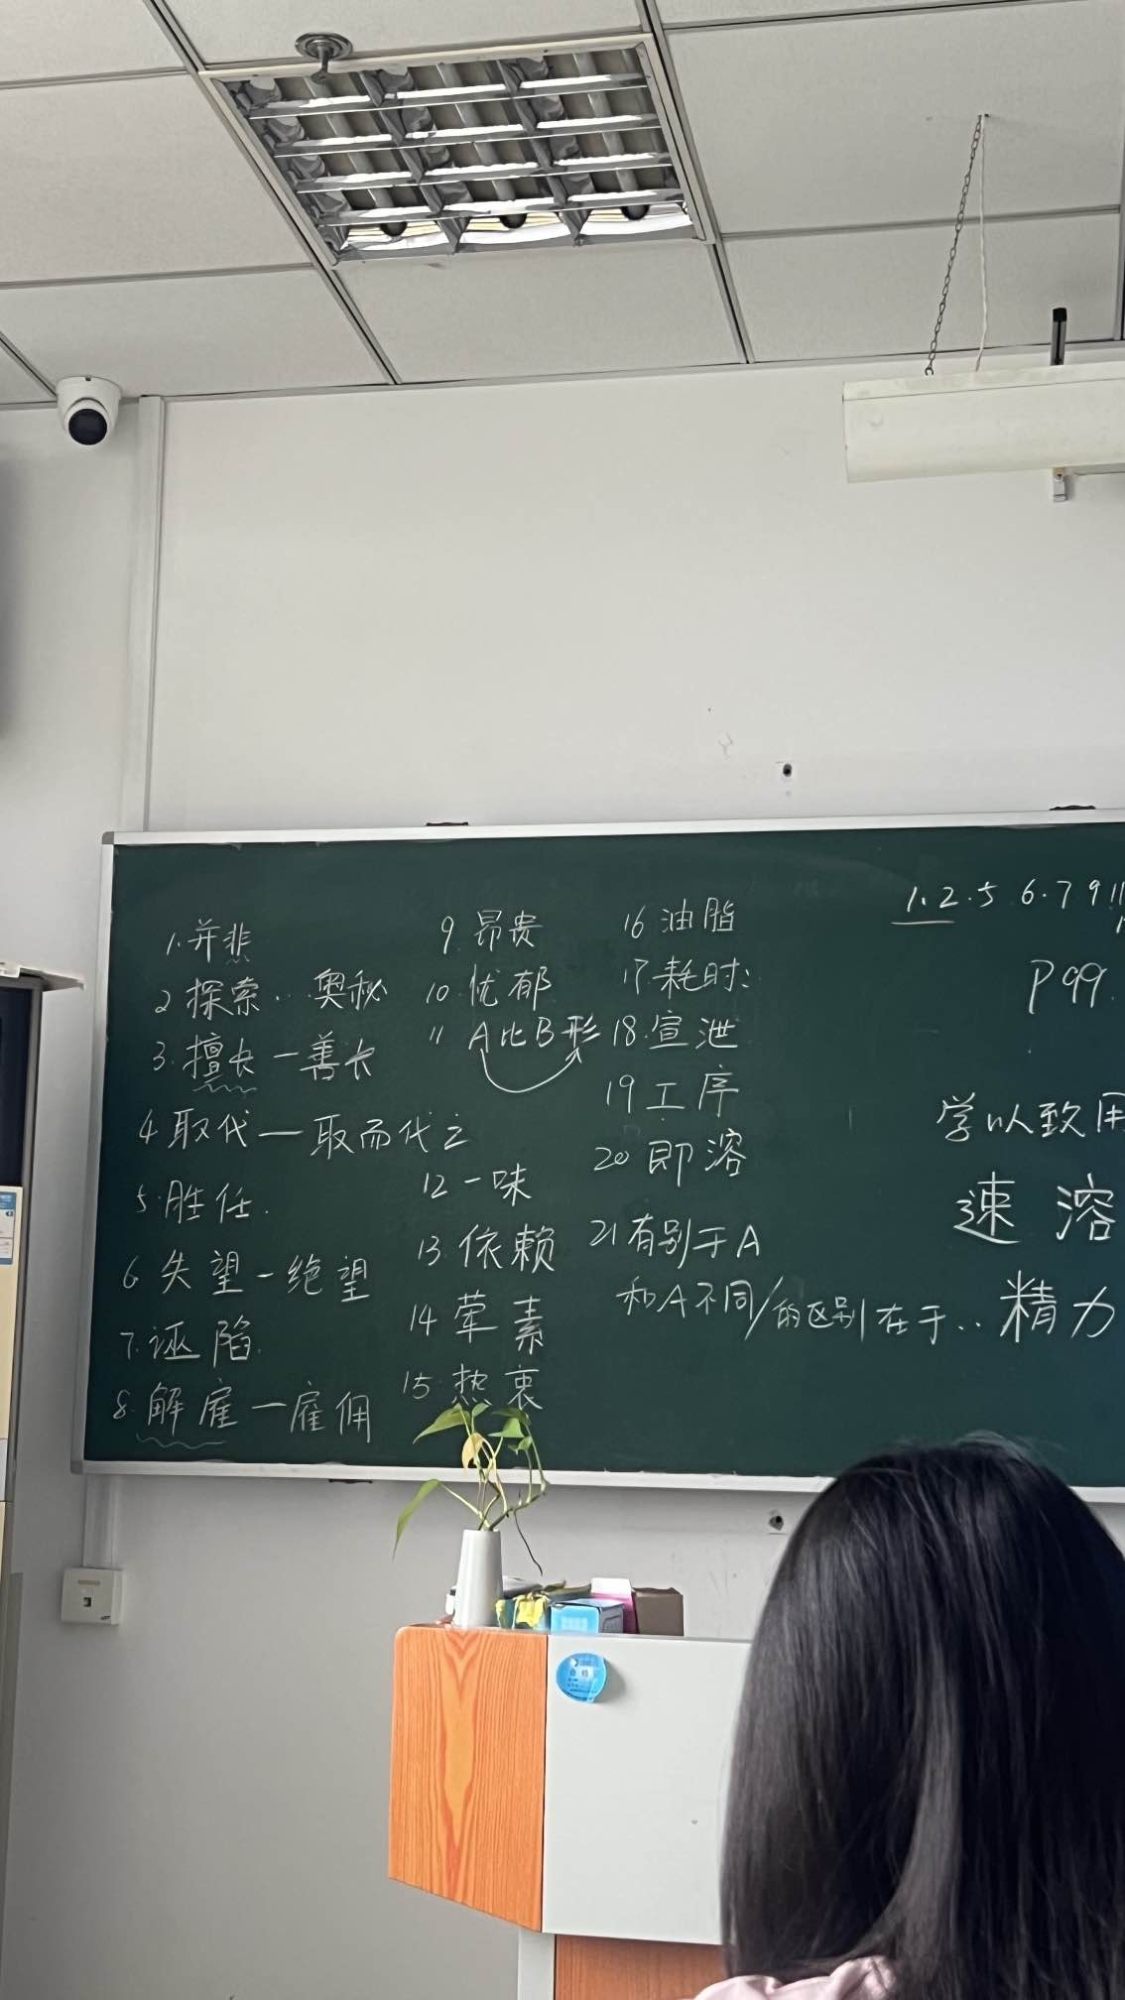 1.并非
2 探索..奥秘
3.擅长—善长
4 取代—取而代之
5.胜任.
6 失望—绝望
7.诬陷.
8.解雇—雇佣
9 昂贵
10.忧郁
11 A比B形
12 一味
13 依赖
14 荤素
15.热衷
16 油脂
17 耗时:
18.宣泄
19 工序
20 即溶
21 有别于A
和A不同/的区别在于..
1.2.5 6.7 9 11
P99.
学以致用
速溶
精力